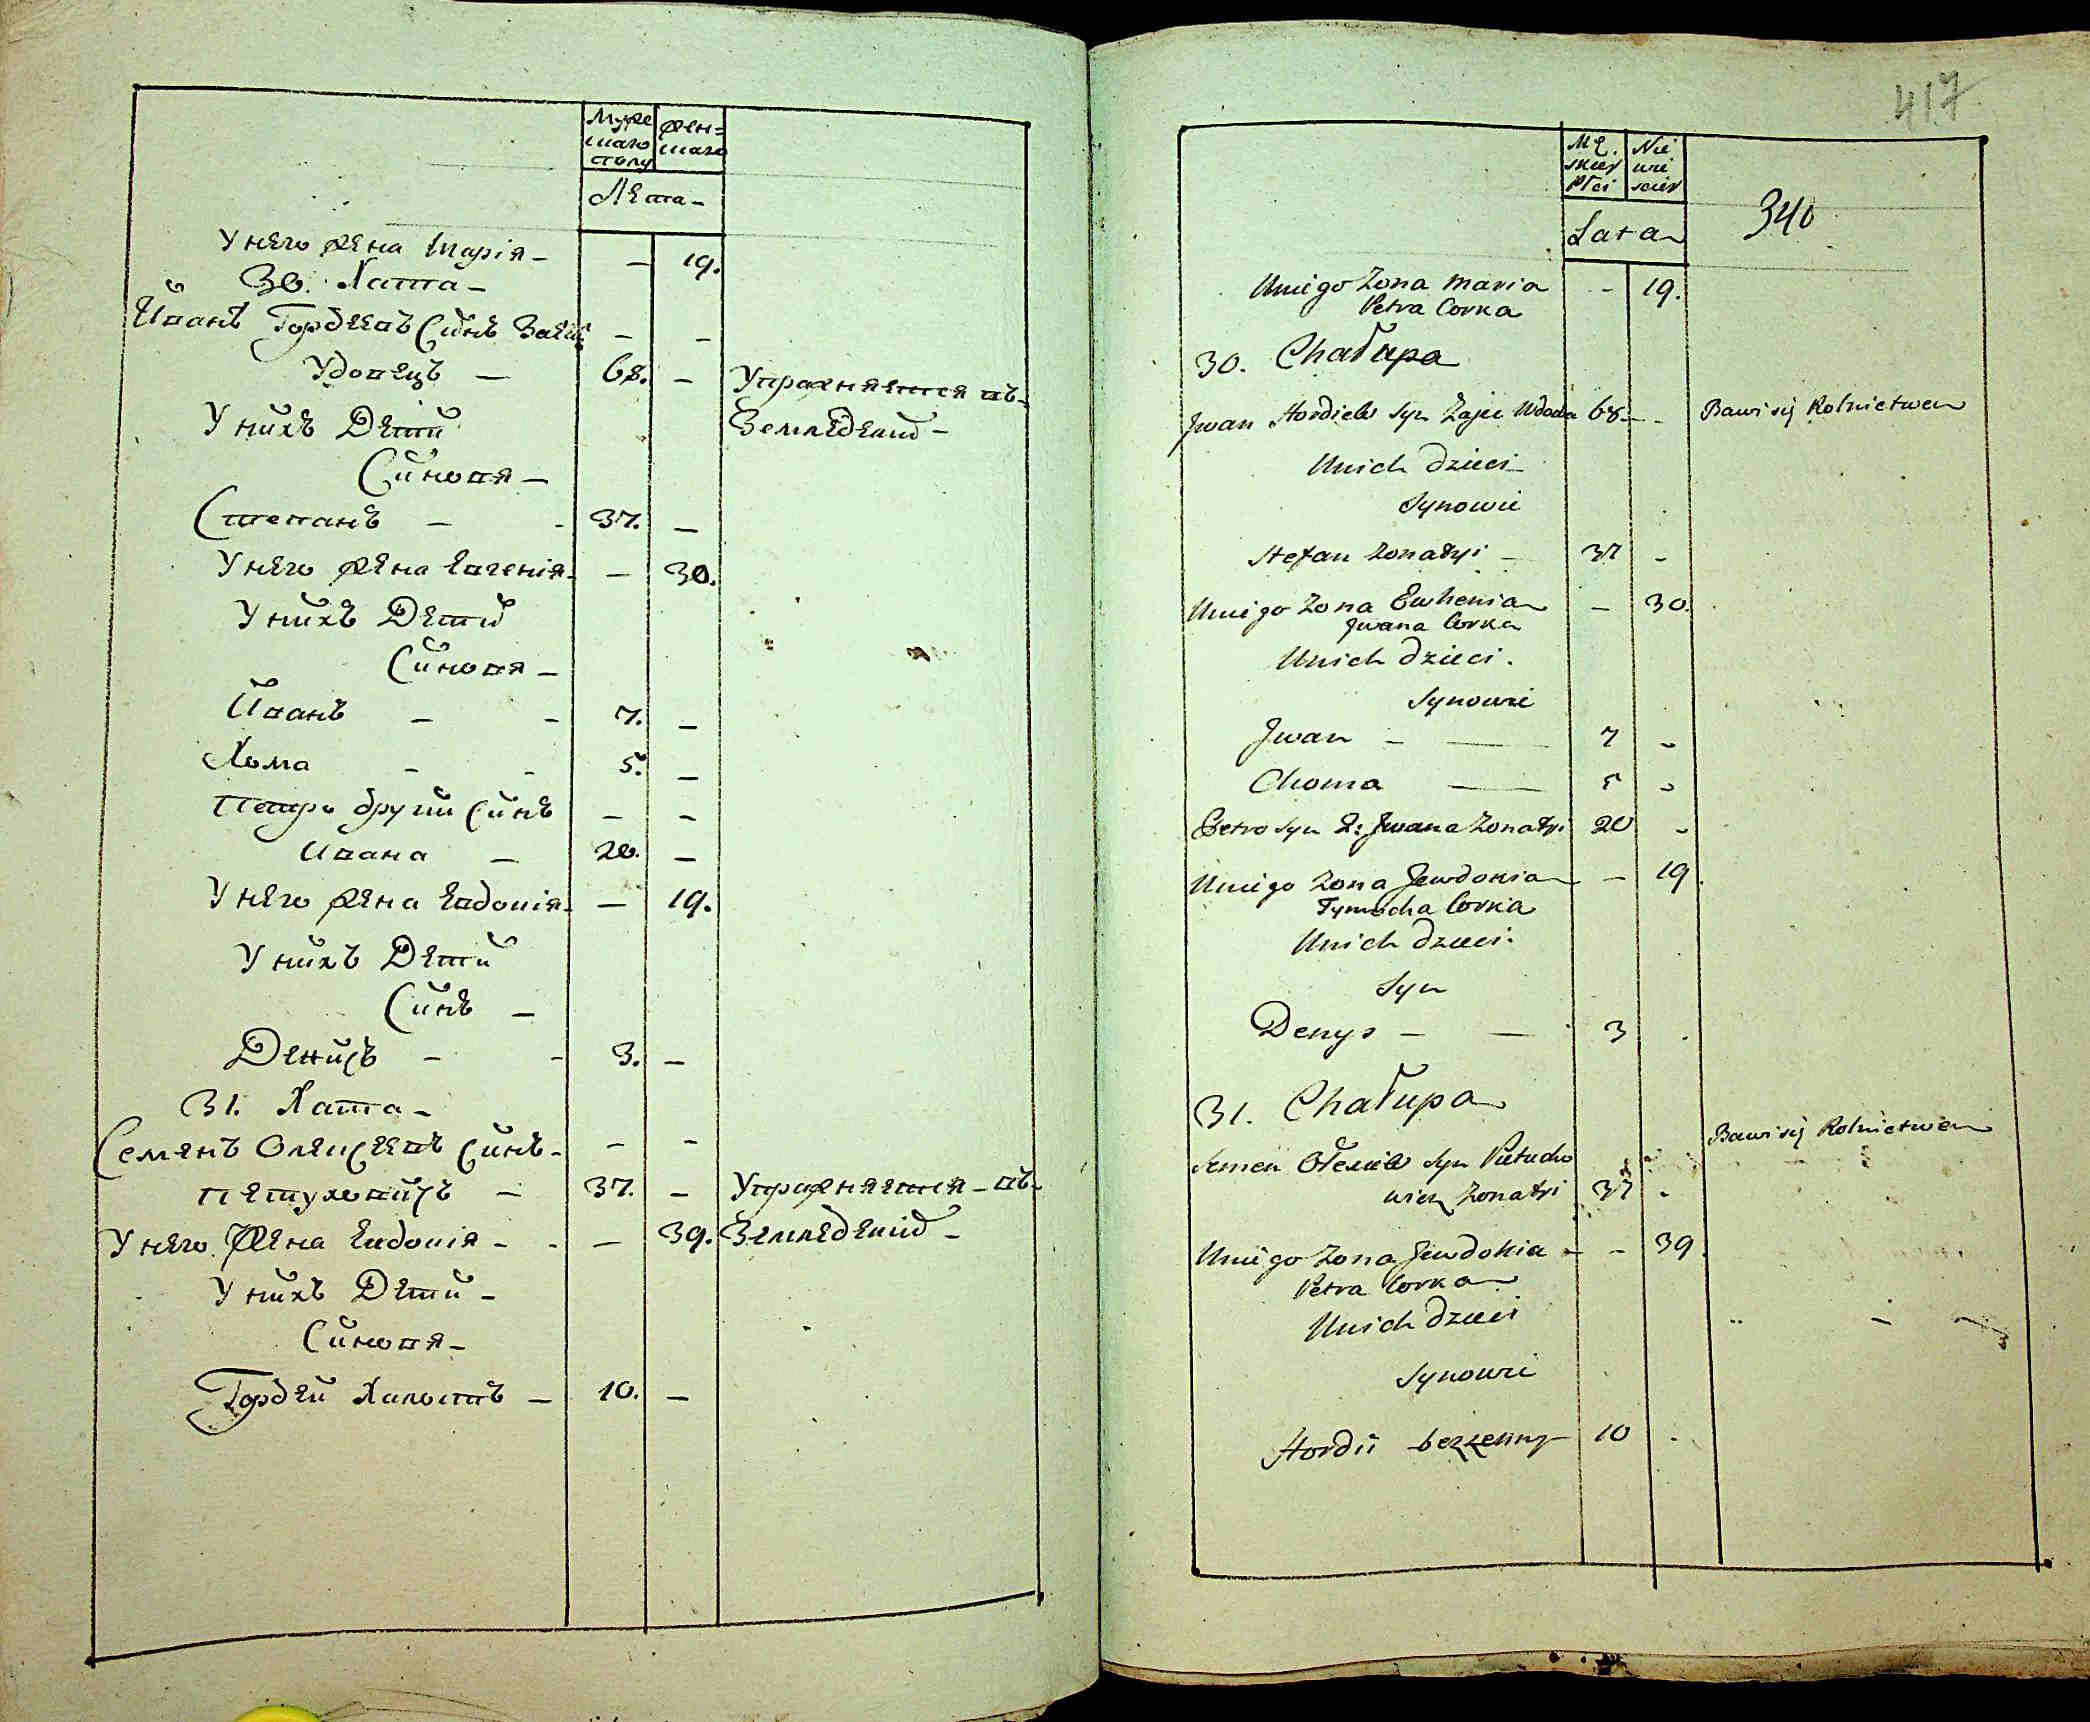 Муже
шаго
полу
жен=
шаго
Лѣта -
У нѣго жѣна Марія - - 19.
30. Хата -
Йванъ Гордѣевъ Сийнъ Заѣцъ - -
Удовѣцъ - 68. - Упражняется въ
У нийхъ Дѣтий Земледѣлий -
Сийновя -
Степанъ - - 37. -
У нѣго жѣна Евгенія - - 30.
У нийхъ Дѣтий
Сийновя -
Йванъ - - 7. -
Хома - - 5. -
Петръ другий Сийнъ - -
Ивана - 20. -
У нѣго жѣна Евдокія - - 19.
У нийхъ Дѣтий
Сийнъ -
Денийсъ - - 3. -
31. Хата -
Семѣнъ Олѣксѣевъ Сийнъ - - -
Пѣтуховийчъ - 37. - Упражняется - въ
У нѣго Жѣна Евдокія - - - 39. Земледѣлий -
У нийхъ Дѣтий -
Сийновя -
Гордѣй Халостъ - 10. -
417
Mę.
skiey
płci
Nie
wie
sciey
Lata
340
Uniego Zona Maria - 19.
Petra Corka
30. Chałupa
Jwan Hordiew Syn Zajec Wdowa 68. - - Bawi się Rolnictwem
Unich dzieci
Synowie
Stefan Zonatyi - 37 -
Uniego Zona Ewhenia - 30.
Jwana Corka
Unich dzieci.
Synowie
Jwan - - 7 -
Choma - 5 -
Petro Syn 2: Jwana Zonatyi 20 -
Uniego Zona Jewdokia - 19.
Tymocha Corka
Unich dzieci.
Syn
Denys - - 3 .
31. Chałupa
Bawi się Rolnictwem
Semen Ołexiew Syn Pietucho
wicz Zonatyi 37 -
Uniego Zona Jewdokia - - 39.
Petra Corka
Unich dzieci
Synowie
Hordii bezzenny 10 .